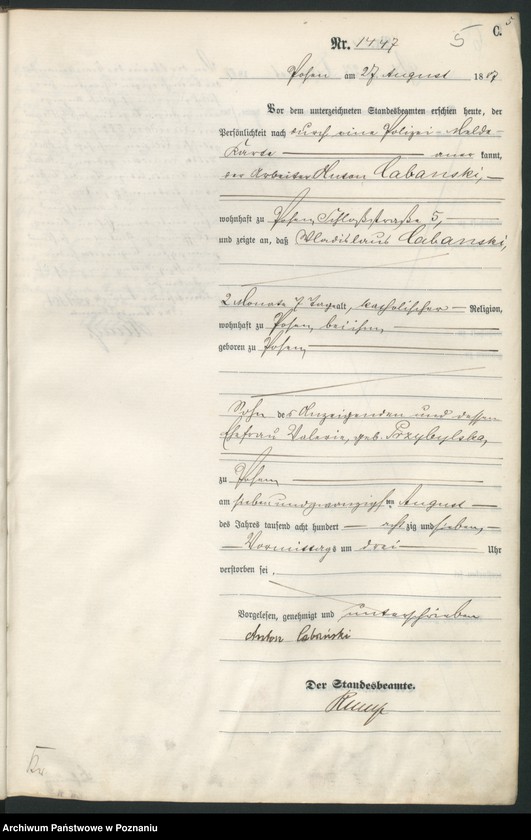 C.
5
Nr. 1447
Posen am 27 August 1887
Vor dem unterzeichneten Standesbeamten erschien heute, der
Persönlichkeit nach durch eine Polizei-Melde-
Karte anerkannt,
der Arbeiter Anton Cabański,
wohnhaft zu Posen, Schloßstraße 5,
und zeigte an, daß Vladislaus Cabański,
2 Monate 7 Tage alt, katholischer Religion,
wohnhaft zu Posen, bei ihm,
geboren zu Posen,
Sohn des Anzeigenden und dessen
Ehefrau Valerie, geb. Przybylska,
zu Posen
am siebenundzwanzigsten August
des Jahres tausend acht hundert achtzig und sieben,
Vormittags um drei Uhr
verstorben sei.
Vorgelesen, genehmigt und unterschrieben
Anton Cabański
Der Standesbeamte.
Archiwum Państwowe w Poznaniu